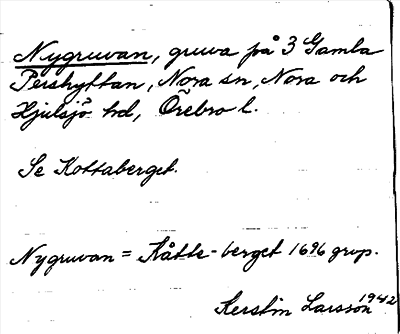 Nygruvan, gruva på 3 Gamla
Pershyttan, Nora sn, Nora och
Hjulsjö hd, Örebro l.
Se Kottaberget.
Nygruvan = Kåtte-berget 1696 grup.
Kerstin Larsson 1942